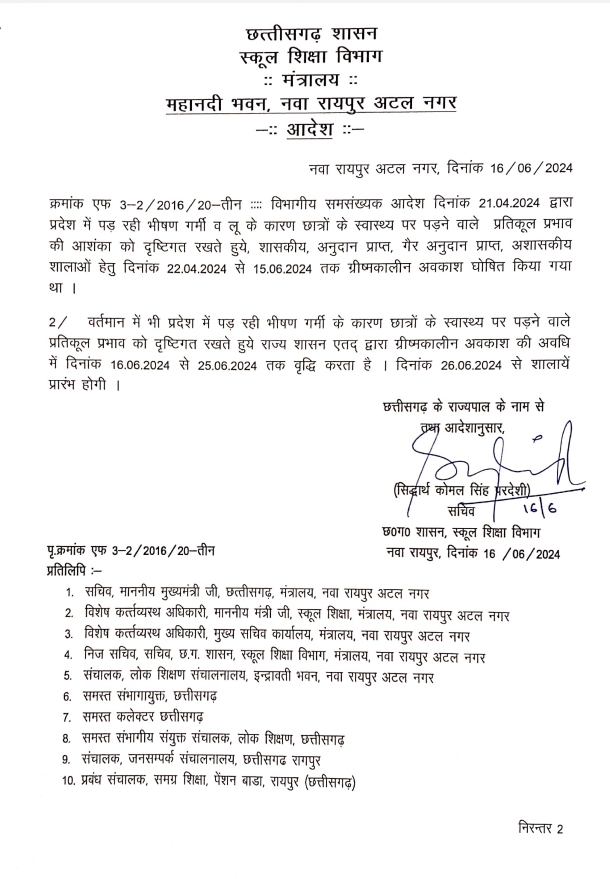 छत्तीसगढ़ शासन
स्कूल शिक्षा विभाग
:: मंत्रालय ::
महानदी भवन, नवा रायपुर अटल नगर
–:: आदेश ::–
नवा रायपुर अटल नगर, दिनांक 16/06/2024
क्रमांक एफ 3–2/2016/20–तीन :::: विभागीय समसंख्यक आदेश दिनांक 21.04.2024 द्वारा
प्रदेश में पड़ रही भीषण गर्मी व लू के कारण छात्रों के स्वास्थ्य पर पड़ने वाले प्रतिकूल प्रभाव
की आशंका को दृष्टिगत रखते हुये, शासकीय, अनुदान प्राप्त, गैर अनुदान प्राप्त, अशासकीय
शालाओं हेतु दिनांक 22.04.2024 से 15.06.2024 तक ग्रीष्मकालीन अवकाश घोषित किया गया
था ।
2/ वर्तमान में भी प्रदेश में पड़ रही भीषण गर्मी के कारण छात्रों के स्वास्थ्य पर पड़ने वाले
प्रतिकूल प्रभाव को दृष्टिगत रखते हुये राज्य शासन एतद् द्वारा ग्रीष्मकालीन अवकाश की अवधि
में दिनांक 16.06.2024 से 25.06.2024 तक वृद्धि करता है । दिनांक 26.06.2024 से शालायें
प्रारंभ होगी ।
छत्तीसगढ़ के राज्यपाल के नाम से
तथा आदेशानुसार,
(सिद्धार्थ कोमल सिंह परदेशी)
सचिव 16/6
छ0ग0 शासन, स्कूल शिक्षा विभाग
नवा रायपुर, दिनांक 16 /06/2024
पृ.क्रमांक एफ 3–2/2016/20–तीन
प्रतिलिपि :–
1. सचिव, माननीय मुख्यमंत्री जी, छत्तीसगढ़, मंत्रालय, नवा रायपुर अटल नगर
2. विशेष कर्त्तव्यस्थ अधिकारी, माननीय मंत्री जी, स्कूल शिक्षा, मंत्रालय, नवा रायपुर अटल नगर
3. विशेष कर्त्तव्यस्थ अधिकारी, मुख्य सचिव कार्यालय, मंत्रालय, नवा रायपुर अटल नगर
4. निज सचिव, सचिव, छ.ग. शासन, स्कूल शिक्षा विभाग, मंत्रालय, नवा रायपुर अटल नगर
5. संचालक, लोक शिक्षण संचालनालय, इन्द्रावती भवन, नवा रायपुर अटल नगर
6. समस्त संभागायुक्त, छत्तीसगढ़
7. समस्त कलेक्टर छत्तीसगढ़
8. समस्त संभागीय संयुक्त संचालक, लोक शिक्षण, छत्तीसगढ़
9. संचालक, जनसम्पर्क संचालनालय, छत्तीसगढ रागपुर
10. प्रबंध संचालक, समग्र शिक्षा, पेंशन बाडा, रायपुर (छत्तीसगढ़)
निरन्तर 2